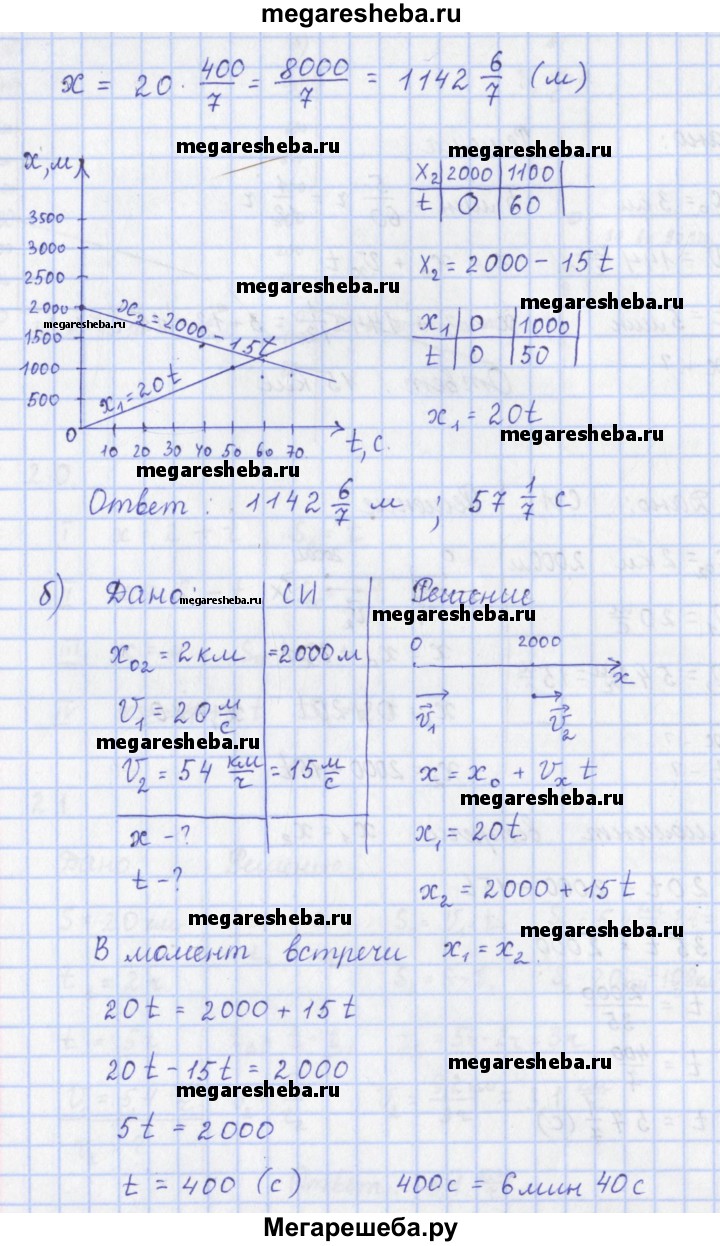 megaresheba.ru
x = 20 · 400/7 = 8000/7 = 1142 6/7 (м)
megaresheba.ru
megaresheba.ru
x, м
3500
3000
2500
2000
1500
1000
500
0
10 20 30 40 50 60 70
t, с.
x₂ = 2000 - 15t
x₁ = 20t
megaresheba.ru
megaresheba.ru
x₂ | 2000 | 1100
t | 0 | 60
x₂ = 2000 - 15t
megaresheba.ru
x₁ | 0 | 1000
t | 0 | 50
x₁ = 20t
megaresheba.ru
megaresheba.ru
Ответ: 1142 6/7 м; 57 1/7 с
б) Дано: СИ Решение
megaresheba.ru
megaresheba.ru
x₀₂ = 2км = 2000м
0 2000 x
v⃗₁ v⃗₂
V₁ = 20 м/с
megaresheba.ru
V₂ = 54 км/ч = 15 м/с
x = x₀ + Vₓ t
megaresheba.ru
x - ?
x₁ = 20t
t - ?
x₂ = 2000 + 15t
megaresheba.ru
megaresheba.ru
В момент встречи x₁ = x₂.
20t = 2000 + 15t
20t - 15t = 2000
megaresheba.ru
megaresheba.ru
5t = 2000
t = 400 (с) 400с = 6мин 40с
Мегарешеба.ру